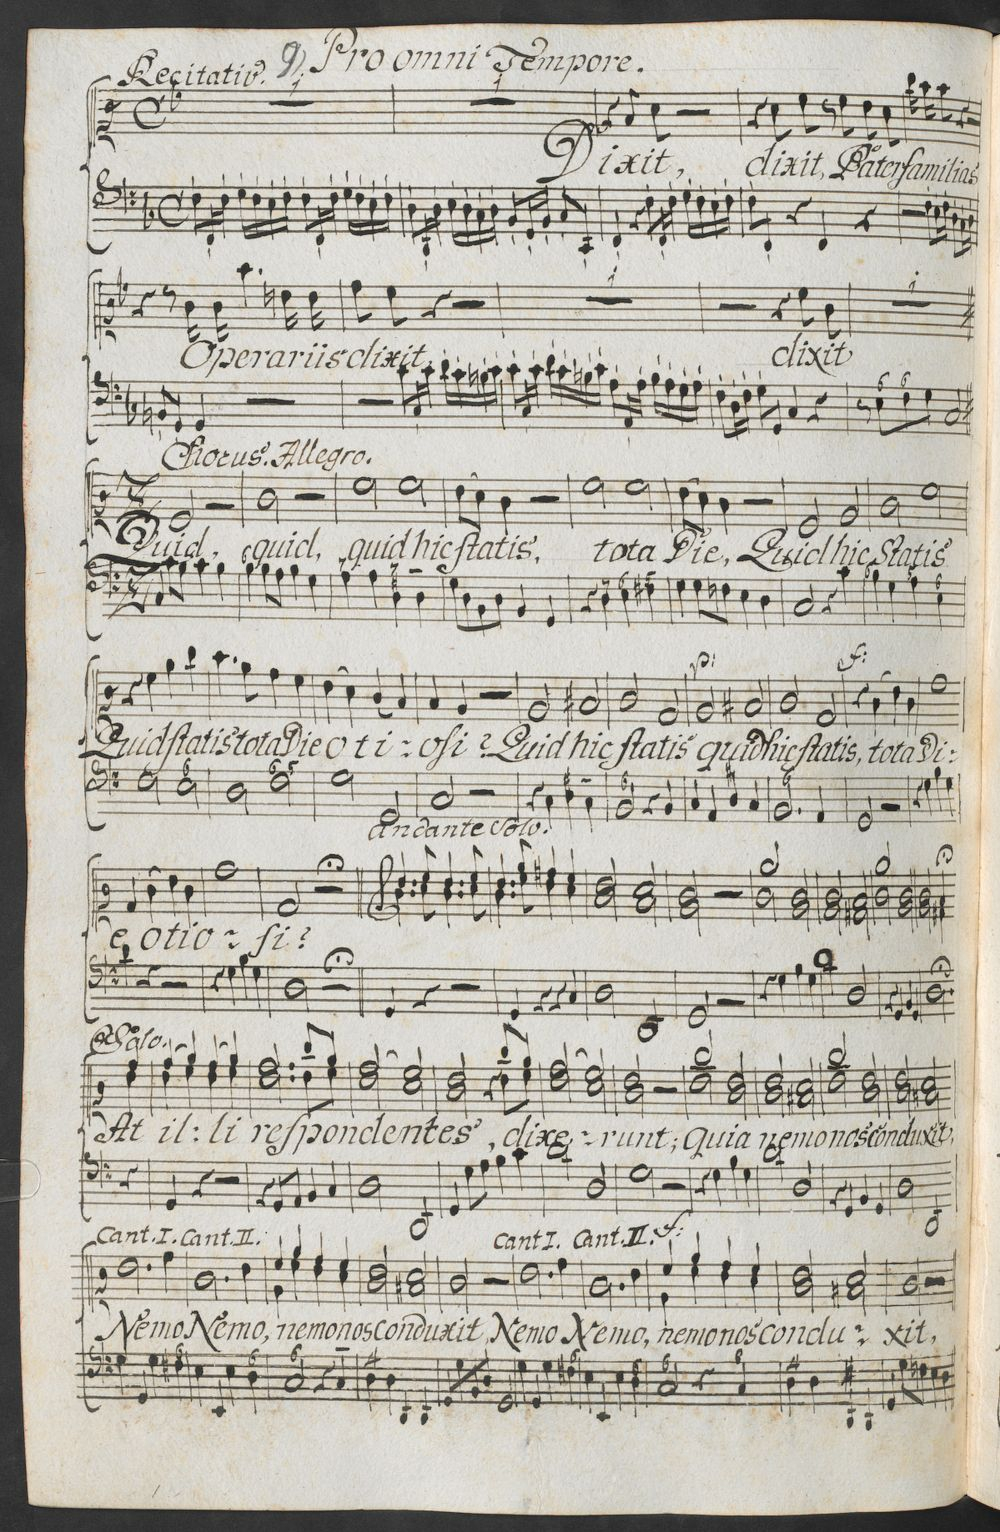 Recitativ. 9) Pro omni Tempore.
Dixit, dixit, Paterfamilias
Operariis dixit, dixit
Chorus. Allegro.
Quid, quid, quid hic statis, tota Die, Quid hic Statis
p: f:
Quid statis tota Die oti-osi? Quid hic statis quid hic statis, tota Di:
Andante Solo.
e, otio-si?
Solo.
At il:li respondentes, dixe-runt; Quia nemo nos conduxit,
Cant. I. Cant. II. Cant I. Cant. II. f:
Nemo Nemo, nemo nos conduxit, Nemo Nemo, nemo nos condu-xit,